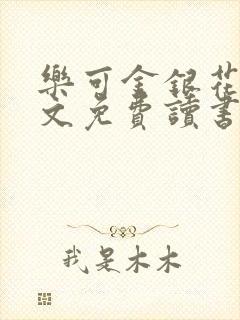 樂可金銀花
文免費讀書
我是木木